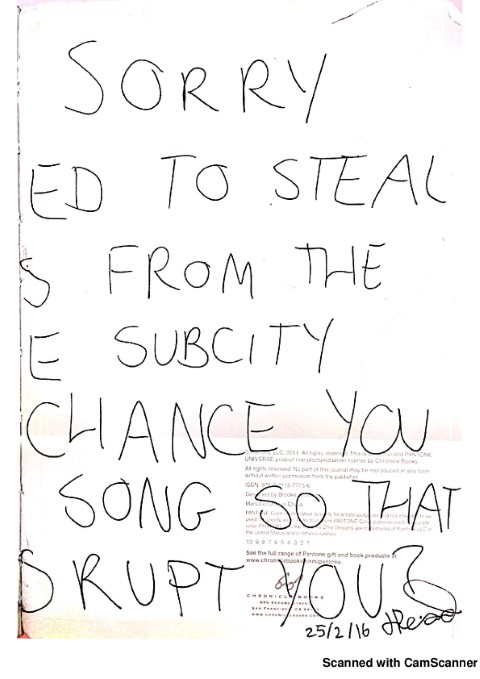 SORRY
ED TO STEAL
S FROM THE
E SUBCITY
CHANCE YOU
LLC, 2011. All rights reserved. This is and PANTONE
UNIVERSE product manufactured under license by Chronicle Books.
All rights reserved. No part of this journal may be reproduced in any form
without written permission from the publisher.
SONG SO THAT
ISBN
Designed by Brooke
Manufactured in China
10 9 8 7 6 5 4 3 2 1
See the full range of Pantone gift and book products at
www.chroniclebooks.com/pantone.
RUPT YOU?
CHRONICLE BOOKS
25/2/16
Scanned with CamScanner